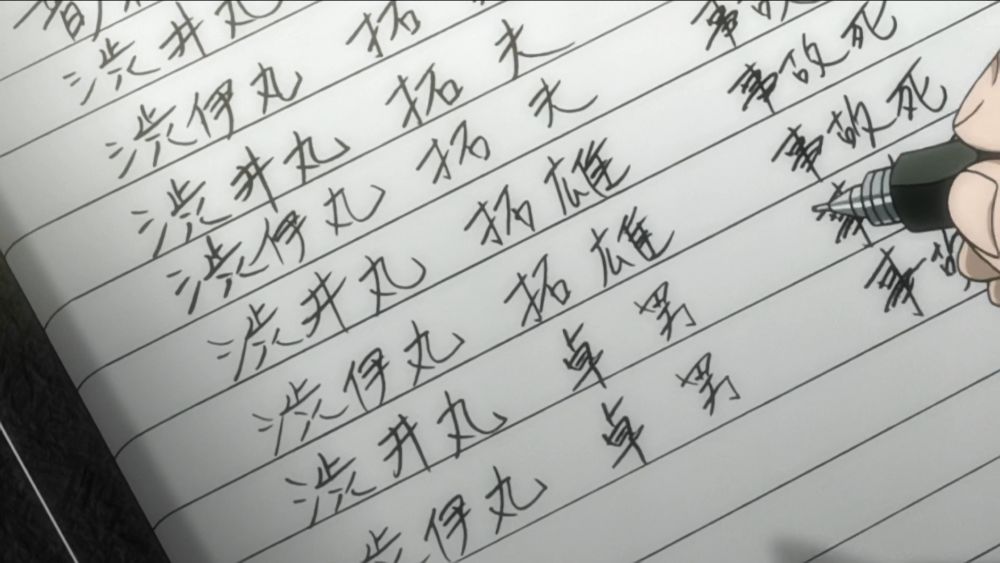 渋井丸
渋伊丸 拓
渋井丸 拓 夫
渋伊丸 拓 夫 事
渋井丸 拓 雄 事故死
渋伊丸 拓 雄 事故死
渋井丸 卓 男 事
渋伊丸 卓 男 事故